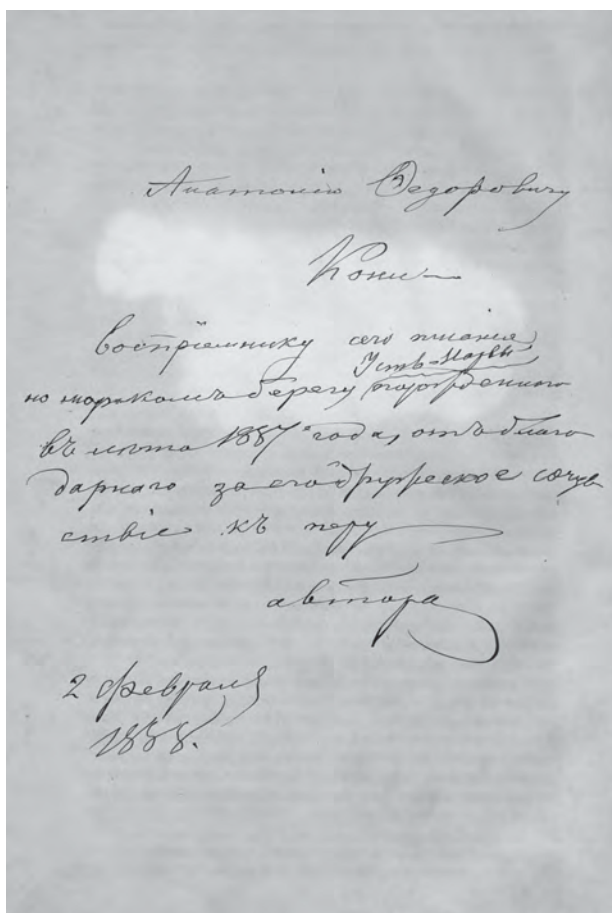 Анатолію Ѳедоровичу
Кони
Воспріемнику сего писанія,
Усть-Нарвы
на морскомъ берегу порожденнаго
въ лѣто 1887 года, отъ благо
дарнаго за его дружеское сочув
ствіе къ перу
автора
2 февраля
1888.